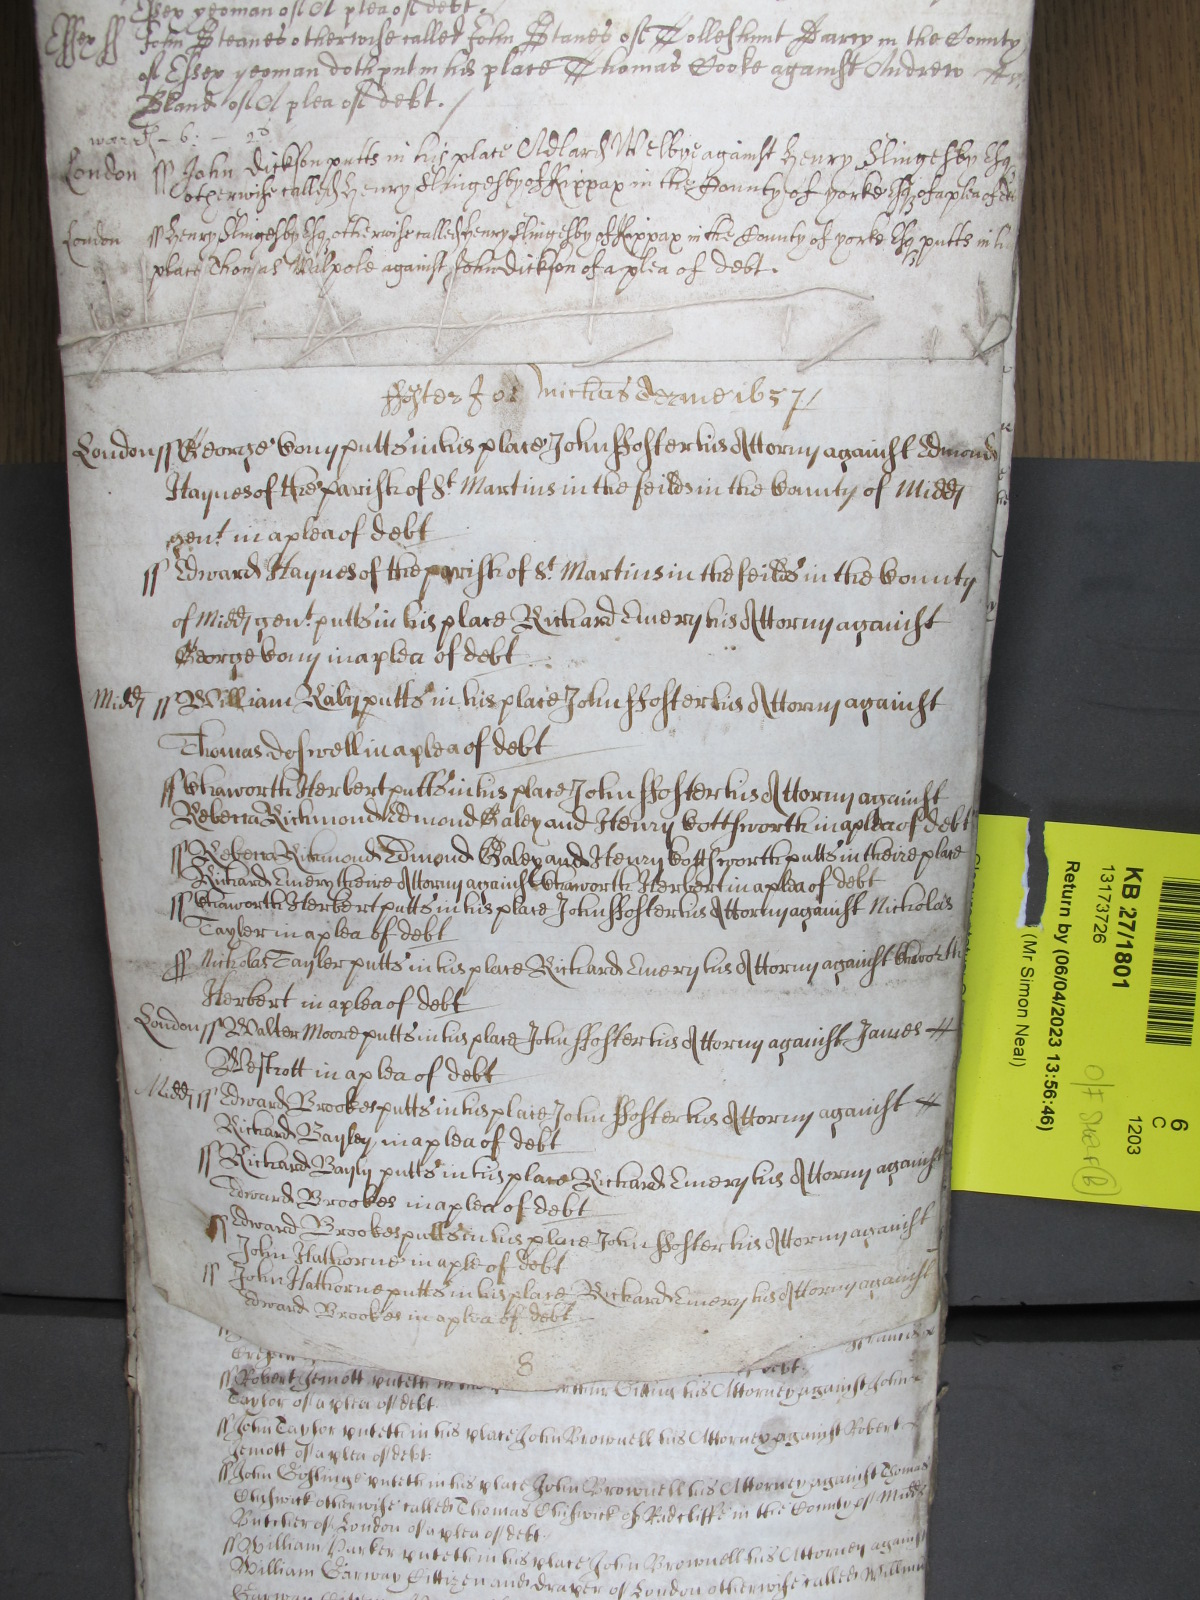 Essex yeoman of A plea of debt.
Essex ss John Steanes otherwise called John Stanes of Tolleshunt Darcy in the County
of Essex yeoman doth put in his place Thomas Cooke against Andrew
Bland of A plea of debt.
London ss John Dickson putts in his place Adlard Welbye against Henry Slingesby Esq
otherwise called Henry Slingesby of Kippax in the County of yorke Esq of a plea of
London ss Henry Slingesby Esq otherwise called Henry Slingesby of Kippax in the County of yorke Esq putts in
place Thomas Walpole against John Dickson of a plea of debt.
ffoster Jo: Michas Terme 1657
London ss George Cony putts in his place John ffoster his Attorny against Edmond
Haynes of the parish of St Martins in the feilds in the County of Midd
gent in a plea of debt
ss Edward Haynes of the parish of St Martins in the feilds in the County
of Midd gent putts in his place Richard Emery his Attorny against
George Cony in a plea of debt
Midd ss William Raby putts in his place John ffoster his Attorny against
Thomas Doswell in a plea of debt
ss Chaworth Herbert putts in his place John ffoster his Attorny against
Rebecca Richmond Edmond Galey and Henry Cottsworth in a plea of debt
ss Rebecca Richmond Edmond Galey and Henry Cottsworth putts in theire place
Richard Emery theire Attorny against Chaworth Herbert in a plea of debt
ss Chaworth Herbert putts in his place John ffoster his Attorny against Nicholas
Tayler in a plea of debt
ss Nicholas Tayler putts in his place Richard Emery his Attorny against Chaworth
Herbert in a plea of debt
London ss Walter Moore putts in his place John ffoster his Attorny against James
Westcott in a plea of debt
Midd ss Edward Brookes putts in his place John ffoster his Attorny against
Richard Bayley in a plea of debt
ss Richard Bayly putts in his place Richard Emery his Attorny against
Edward Brookes in a plea of debt
ss Edward Brookes putts in his place John ffoster his Attorny against
John Hathorne in a ple of debt
ss John Hathorne putts in his place Richard Emery his Attorny against
Edward Brookes in a plea of debt
8
debt.
ss Robert Jemott putteth in his Attorney against John
Taylor of a plea of debt.
ss John Taylor putteth in his place John Brownell his Attorney against Robert
Jemott of a plea of debt.
ss John Goslinge putteth in his place John Brownell his Attorney against Thomas
Chiswick otherwise called Thomas Chiswick of Radcliffe in the County of Midd
Butcher of London of a plea of debt.
ss William Parker putteth in his place John Brownell his Attorney against
William Garway Cittizen and draper of London otherwise called William
Garway
KB 27/1801
13173726
Return by (06/04/2023 13:56:46)
(Mr Simon Neal)
6
C
1203